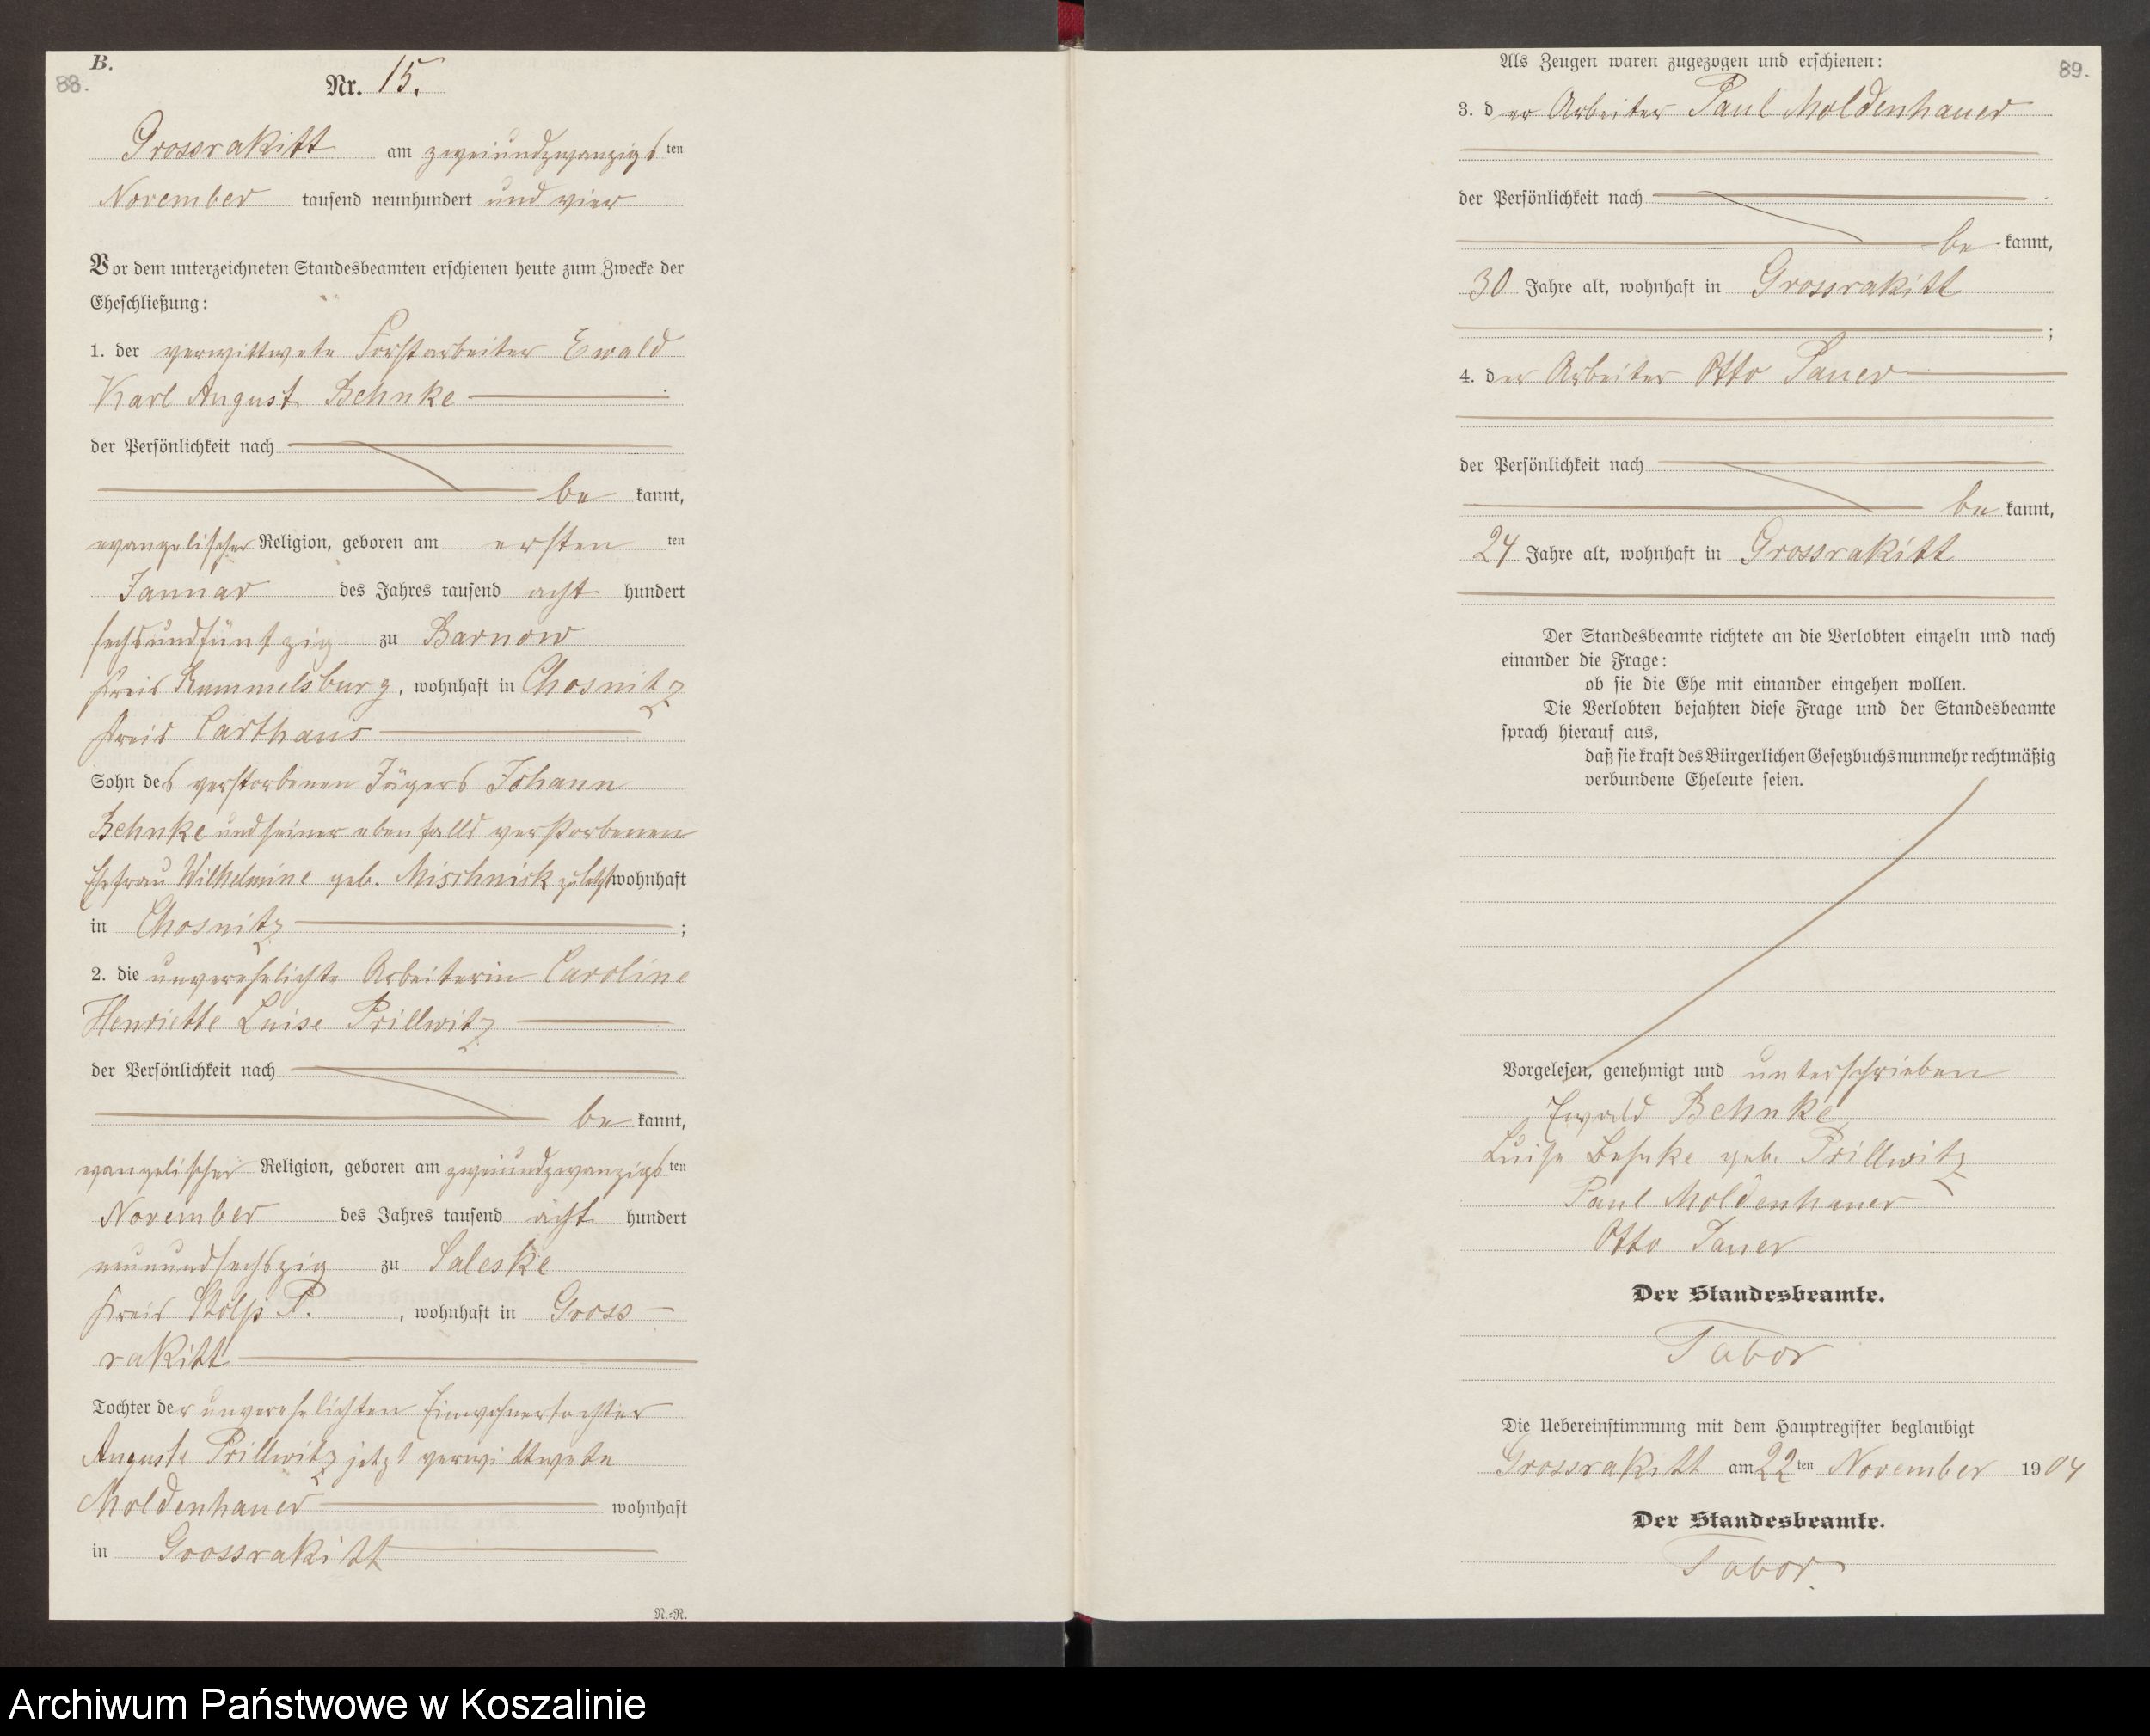 B.
88.
Nr. 15.
Grossrakitt am zweiundzwanzigsten
November tausend neunhundert und vier
Vor dem unterzeichneten Standesbeamten erschienen heute zum Zwecke der
Eheschließung:
1. der verwittwete Forstarbeiter Ewald
Karl August Behnke
der Persönlichkeit nach
be kannt,
evangelischer Religion, geboren am ersten ten
Januar des Jahres tausend acht hundert
sechsundfünfzig zu Barnow
Kreis Rummelsburg, wohnhaft in Chosnitz
Kreis Carthaus
Sohn des verstorbenen Jägers Johann
Behnke und seiner ebenfalls verstorbenen
Ehefrau Wilhelmine geb. Mischnick zuletzt wohnhaft
in Chosnitz ;
2. die unverehelichte Arbeiterin Caroline
Henriette Luise Prillwitz
der Persönlichkeit nach
be kannt,
evangelischer Religion, geboren am zweiundzwanzigsten
November des Jahres tausend acht hundert
neunundsechszig zu Saleske
Kreis Stolp P. , wohnhaft in Gross-
rakitt
Tochter der unverehelichten Einwohnertochter
Auguste Prillwitz jetzt verwittwete
Moldenhauer wohnhaft
in Grossrakitt
N.=R.
89.
Als Zeugen waren zugezogen und erschienen:
3. der Arbeiter Paul Moldenhauer
der Persönlichkeit nach
be kannt,
30 Jahre alt, wohnhaft in Grossrakitt
;
4. der Arbeiter Otto
der Persönlichkeit nach
be kannt,
24 Jahre alt, wohnhaft in Grossrakitt
Der Standesbeamte richtete an die Verlobten einzeln und nach
einander die Frage:
ob sie die Ehe mit einander eingehen wollen.
Die Verlobten bejahten diese Frage und der Standesbeamte
sprach hierauf aus,
daß sie kraft des Bürgerlichen Gesetzbuchs nunmehr rechtmäßig
verbundene Eheleute seien.
Vorgelesen, genehmigt und unterschrieben
Ewald Behnke
Luise Behnke geb. Prillwitz
Paul Moldenhauer
Otto
Der Standesbeamte.
Tabor
Die Uebereinstimmung mit dem Hauptregister beglaubigt
Grossrakitt am 22 ten November 1904
Der Standesbeamte.
Tabor.
Archiwum Państwowe w Koszalinie